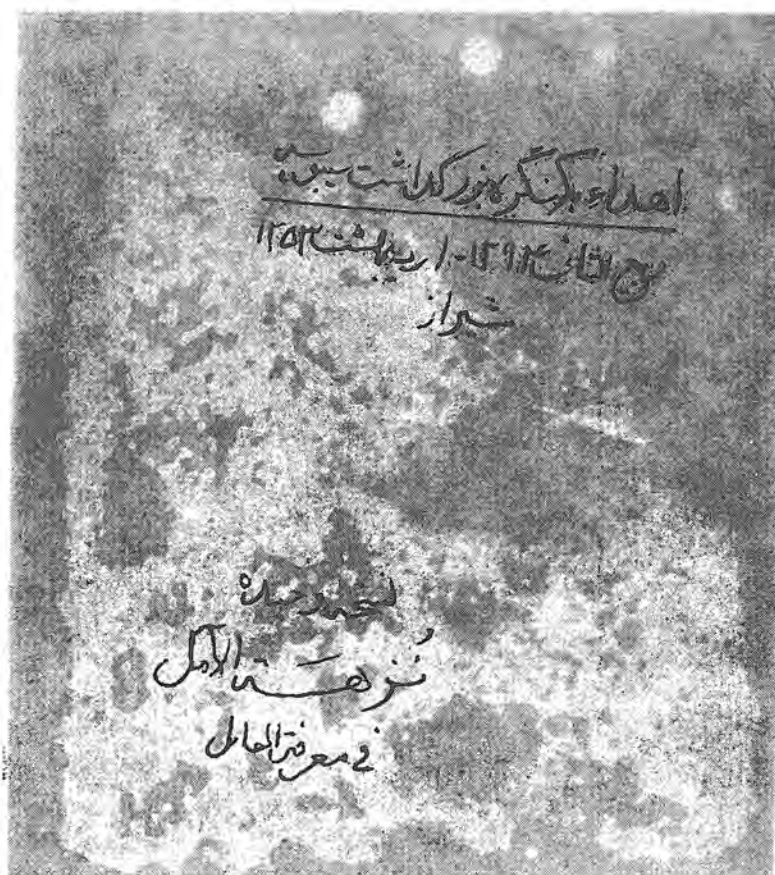 اهداء بکنگره بزرگداشت سیبویه
ربیع الثانی ۱۳۹۴ - اردیبهشت ۱۳۵۳
شیراز
نسخه وحیده
نُزهَة الآمل
في معرفة العامل